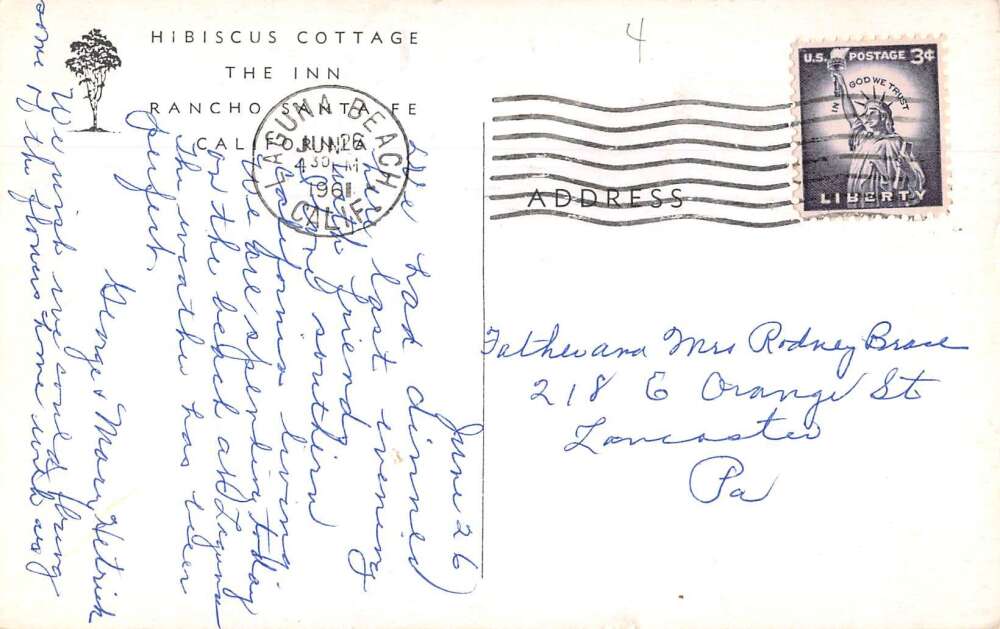 HIBISCUS COTTAGE
THE INN
RANCHO SANTA FE
CALIFORNIA
4
LAGUNA BEACH
JUN 26
4 30 PM
1961
CALIF.
U.S. POSTAGE 3¢
IN GOD WE TRUST
LIBERTY
ADDRESS
June 26
We had dinner
here last evening
with friends
and southern
California living
We are spending today
on the beach at Laguna
The weather has been
perfect.
George & Mary Hetrick
We wish we could bring
some of the flowers home with us
Father and Mrs Rodney Brace
218 E Orange St
Lancaster
Pa